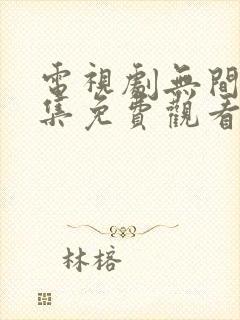 電視劇無間
集免費觀看
林榙